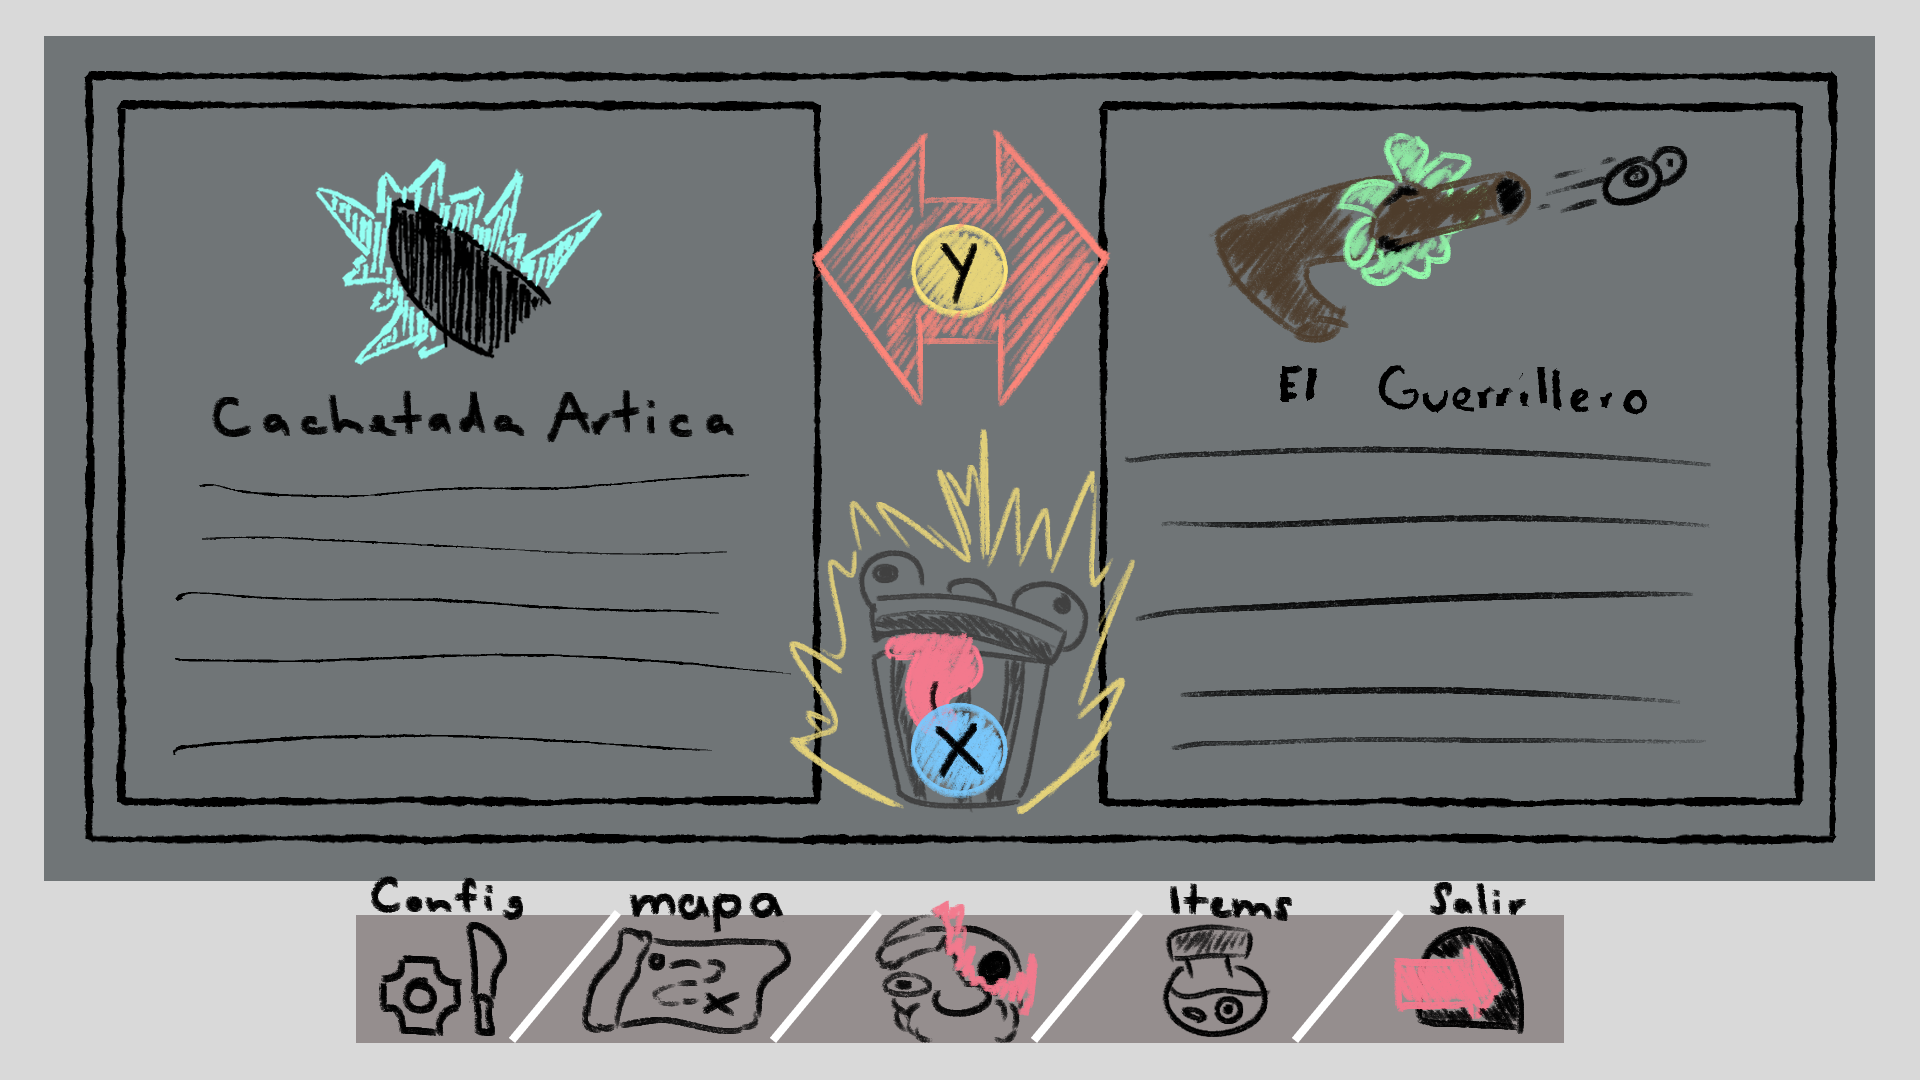 Cachetada Artica
Y
El Guerrillero
X
Config
mapa
Items
Salir